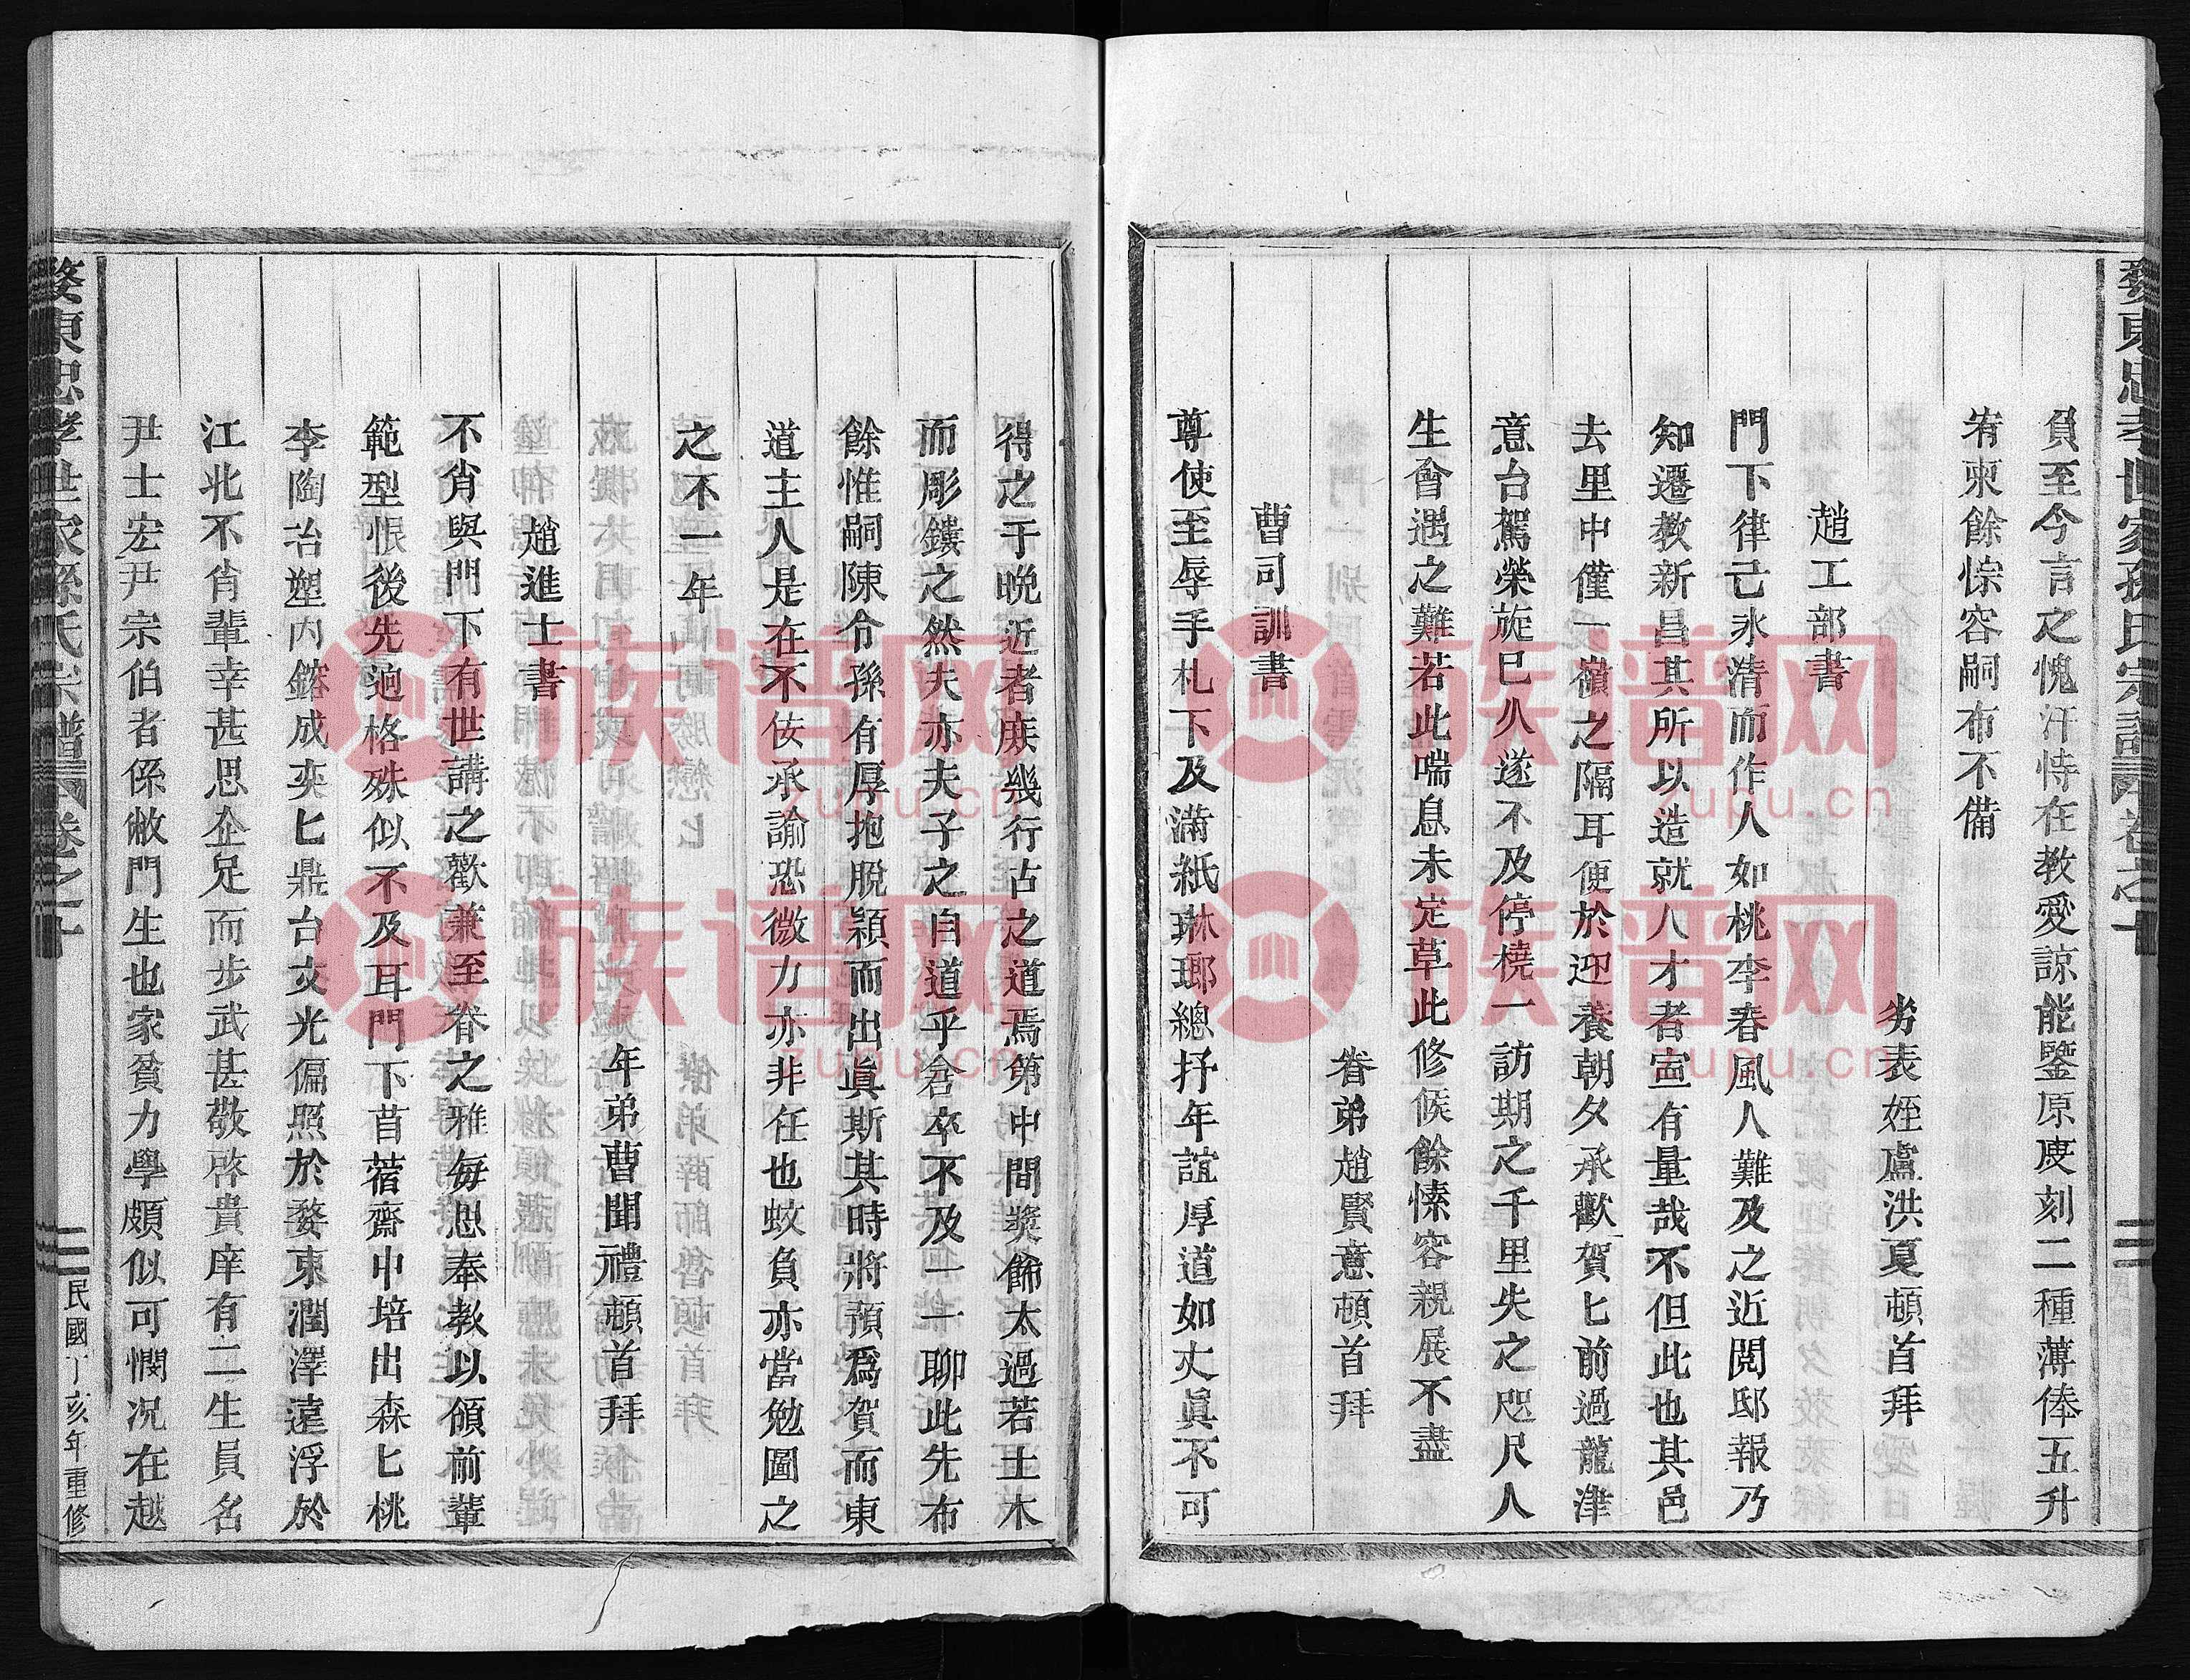 婺東忠孝世家孫氏宗譜 卷之十
負至今言之愧汗恃在教愛諒能鑒原庋刻二種薄俸五升
宥柬餘悰容嗣布不備
劣表姪盧洪夏頓首拜
趙工部書
門下律己氷清而作人如桃李春風人難及之近閱邸報乃
知遷教新昌其所以造就人才者宣有量哉不但此也其邑
去里中僅一嶺之隔耳便於迎養朝夕承歡賀匕前過龍津
意台駕榮旋巳久遂不及停橈一訪期之千里失之咫尺人
生會遇之難若此喘息未定草此修候餘愫容親展不盡
眷弟趙賢意頓首拜
曹司訓書
尊使至辱手札下及滿紙琳瑯總抒年誼厚道如丈眞不可
得之于晩近者庻幾行古之道焉第中間奬飾太過若土木
而彫鏤之然夫亦夫子之自道乎倉卒不及一一聊此先布
餘惟嗣陳令孫有厚抱脫穎而出眞斯其時將預爲賀而東
道主人是在不佞承諭恐微力亦非任也蚊負亦當勉圖之
之不一年
年弟曹聞禮頓首拜
趙進士書
不肖與門下有世講之歡兼至眷之雅每思奉教以頒前輩
範型恨後先逈格殊似不及耳門下苜蓿齋中培出森匕桃
李陶冶塑內鎔成奕匕鼎台文光偏照於婺東潤澤遠浮於
江北不肖輩幸甚思企足而步武甚敬啓貴庠有二生員名
尹士宏尹宗伯者係敝門生也家貧力學頗似可憫况在越
婺東忠孝世家孫氏宗譜 卷之十
民國丁亥年重修
族谱网
zupu.cn
族谱网
zupu.cn
族谱网
zupu.cn
族谱网
zupu.cn